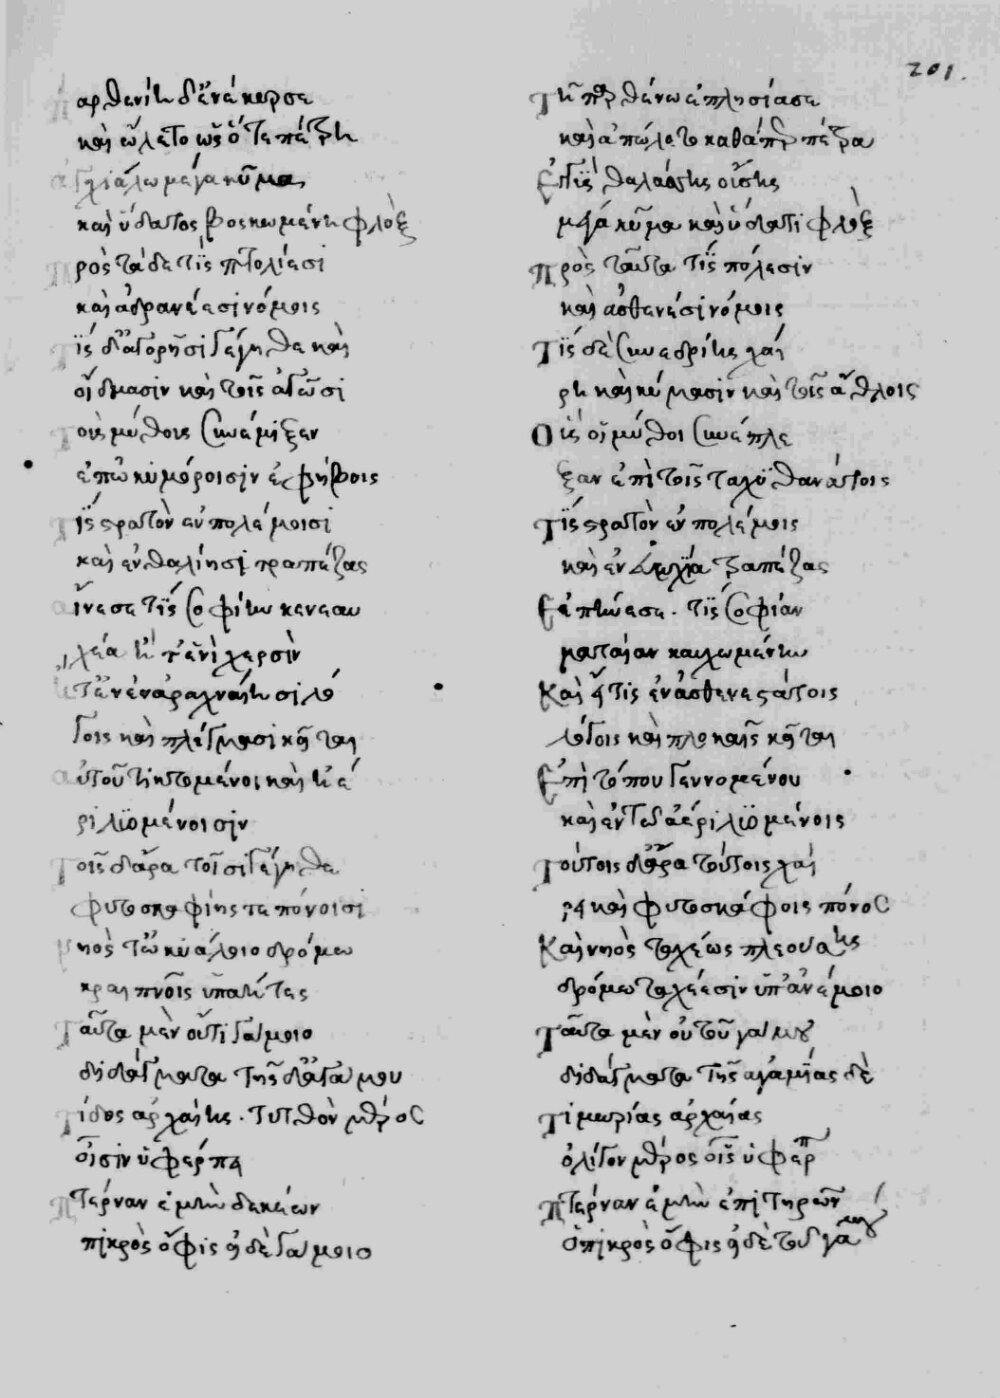 201.
Παρθενίη δ' ἕν' ἄκερσε
καὶ ὤλετο ὡς ὅτε πέτρη
ἀγχιάλω μέγα κῦμα
καὶ ὕδατος βοσκωμένη φλὸξ
Πρὸς τάδε τίς πτολίεσι
καὶ ἀδρανέεσι νόμοις
Τίς δ' ἀγορῆσι γέγηθε καὶ
οἴδμασιν καὶ τοῖς ἀγῶσι
Τοις μύθοις συνέμιξαν
ἐπ' ὠκυμόροισιν ἐφήβοις
Τίς στρατὸν ἐν πολέμοισι
καὶ ἐν θαλίησι τραπέζας
αἴνεσε τίς σοφίην κενεαυ
χέα ἤ τ' ἐνὶ χερσὶν
ἐν ἀραχναίησι λό
γοις καὶ πλέγμασι κῆται
αὐτοῦ τικτομένοι καὶ ἠέ
ρι λυομένοισιν
Τοῖς δ' ἄρα τοῖσι γέγηθε
φυτοσκαφίης τε πόνοισι
Νηὸς τ' ὠκυάλοιο δρόμω
κραιπνοῖς ὑπ' ἀήταις
Ταῦτα μὲν οὔτι γάμοιο
διδάγματα τῆς δ' ἀγάμου
ἀρχαίης. τυτθὸν μέρος
οἷσιν ὑφέρπει
πτέρναν ἐμὴν δοκέων
πικρὸς ὄφις ἠδὲ γάμοιο
Τῆ παρθένω ἐπλησίασε
καὶ ἀπώλετο καθάπερ πέτρα
Ἐπὶ θαλάσσης οὔσης
μέγα κῦμα καὶ ὕδατι φλὸξ
Πρὸς ταῦτα τίς πόλεσιν
καὶ ἀσθενέσι νόμοις
Τίς δὲ συνεδρίης χαί
ρει καὶ κύμασιν καὶ τοῖς ἄθλοις
Οἷς οἱ μῦθοι συνέπλε
ξαν ἐπὶ τοῖς ταχυθανάτοις
Τίς στρατὸν ἐν πολέμοις
καὶ ἐν εὐωχία τραπέζας
Ἐπήνεσε. τίς σοφίαν
ματαίαν καυχωμένην
Καὶ ἥτις ἐν ἀσθενεστάτοις
λόγοις καὶ πλοκαῖς κῆται
Ἐπὶ τόπου γεννομένου
καὶ ἐν τῶ ἀέρι λυομένοις
Τούτοις δ' ἄρα τούτοις χαί
ρει καὶ φυτοσκάφοις πόνος
Καὶ νηὸς ταχέως πλεούσης
δρόμω ταχέεσιν ὑπ' ἀνέμοιο
Ταῦτα μὲν οὐ τοῦ γάμου
διδάγματα τῆς ἀγαμίας δὲ
Τιμωρίας ἀρχαίας
ὀλίγον μέρος οἷς ὑφέρπ
πτέρναν ἐμὴν ἐπιτηρῶν
ὁ πικρὸς ὄφις ἠδὲ τοῦ γάμου